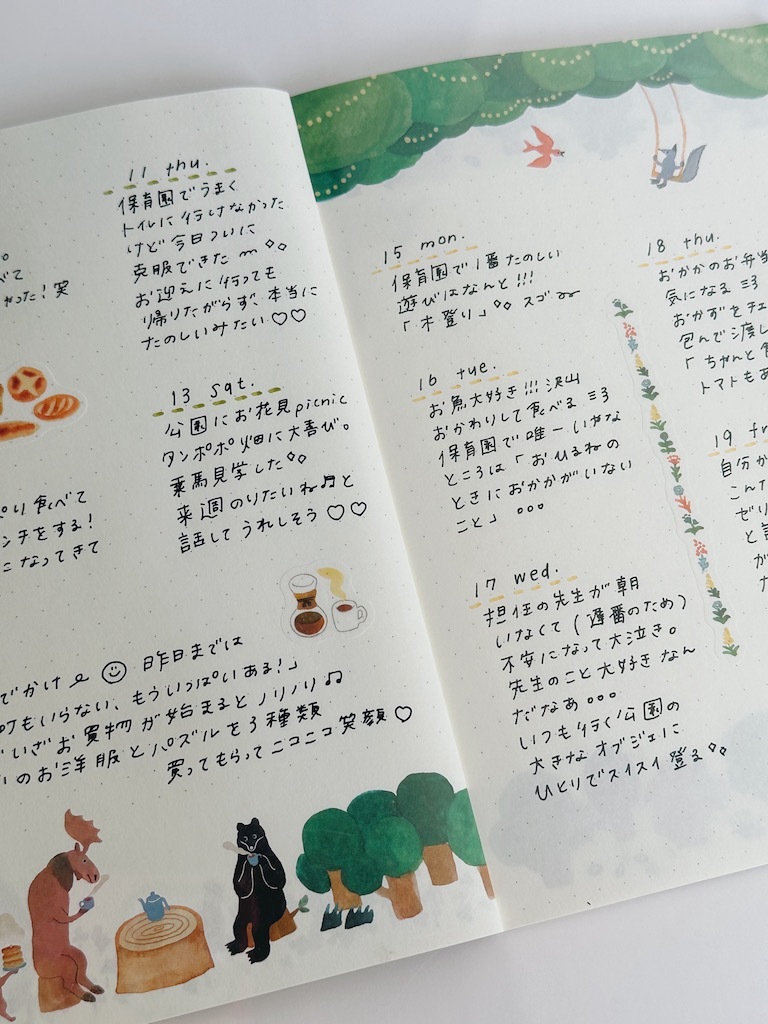 11 thu.
保育園でうまく
トイレに行けなかった
けど今日ついに
克服できた
お迎えに行っても
帰りたがらず、本当に
たのしいみたい♡♡
べて
った！笑
13 sat.
公園にお花見picnic
タンポポ畑に大喜び。
乗馬見学した
来週のりたいね♬と
話してうれしそう♡♡
り食べて
ンチをする！
になってきて
でかけ 昨日までは
何もいらない、もういっぱいある！」
いざお買物が始まるとノリノリ♫
のお洋服とパズルを3種類
買ってもらってニコニコ笑顔♡
15 mon.
保育園で1番たのしい
遊びはなんと!!!
「木登り」 スゴ
16 tue.
お魚大好き!!!沢山
おかわりして食べる
保育園で唯一いやな
ところは「おひるねの
ときにおかかがいない
こと」。。。
17 wed.
担任の先生が朝
いなくて（遅番のため）
不安になって大泣き。
先生のこと大好きなん
だなあ。。。
いつも行く公園の
大きなオブジェに
ひとりでスイスイ登る
18 thu.
おかかのお弁当
気になる
おかずをチェ
包んで渡し
「ちゃんと食
トマトもあ
19 fr
自分か
こんた
ゼリ
と言
が